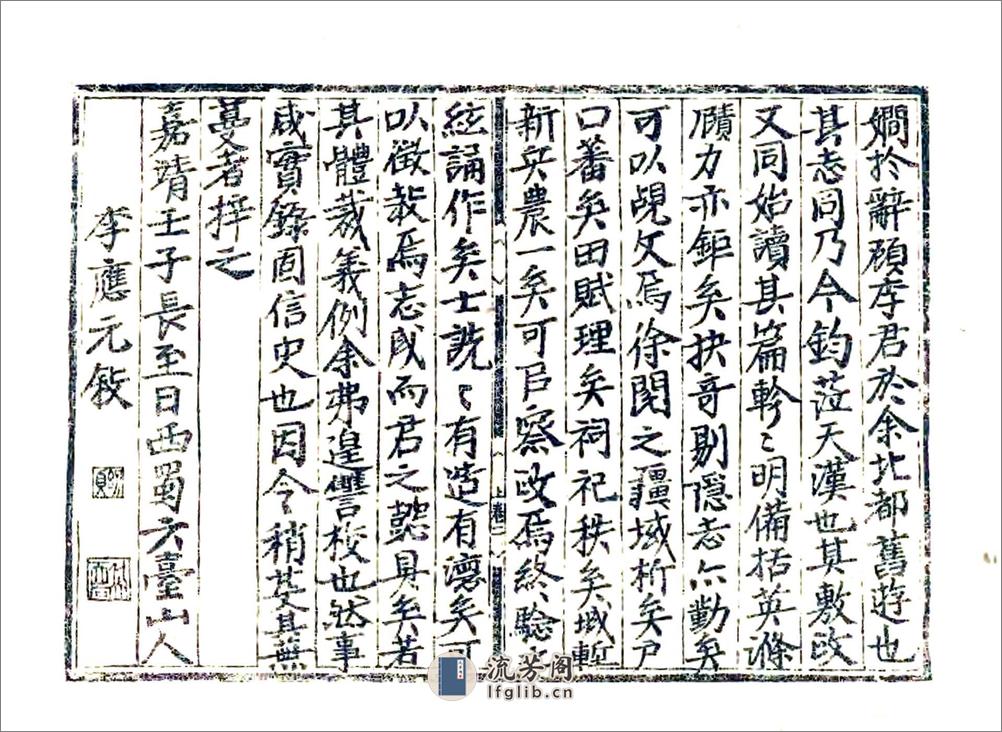 嫺於辭顔李君於余北都舊遊也
其志同乃今鈞莅天漢也其敷政
又同始讀其篇軫〻明備括英滌
賾力亦鉅矣抉奇剔隱志亦勤矣
可以覘文焉徐閱之疆域析矣戶
口蕃矣田賦理矣祠祀秩矣城塹
新矣農一矣可㠯察政焉終驗
絃誦作矣士詵〻有造有瀤矣可
以徵教焉志成而君之懿具矣若
其體裁義例余弗遑讐校也然事
咸實錄固信史也因令稍芟其蕪
蔓者梓之
嘉靖壬子長至日西蜀六臺山人
李應元敘
上卷二
流芳阁
lfglib.cn